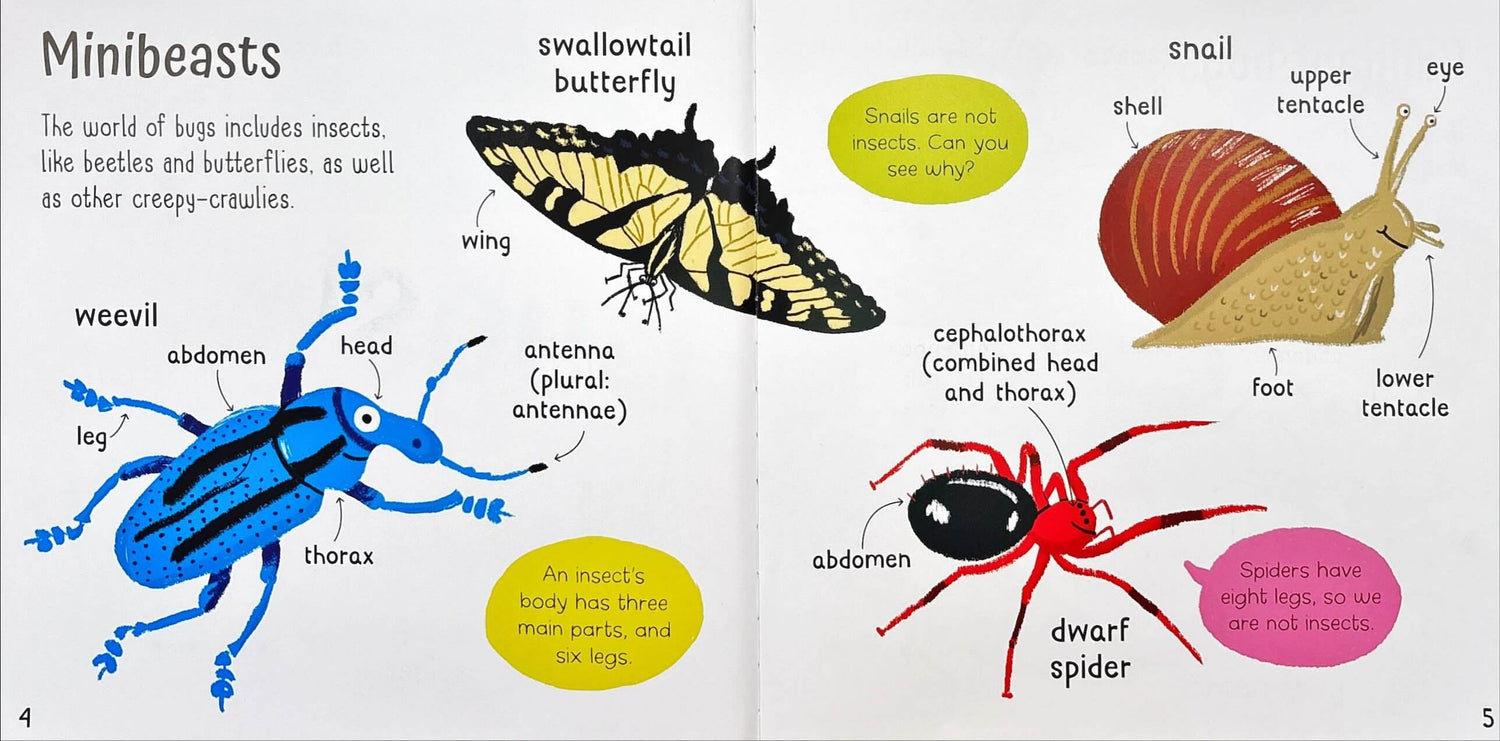 Minibeasts
The world of bugs includes insects,
like beetles and butterflies, as well
as other creepy-crawlies.
swallowtail
butterfly
wing
weevil
abdomen
head
leg
thorax
antenna
(plural:
antennae)
An insect's
body has three
main parts, and
six legs.
4
Snails are not
insects. Can you
see why?
snail
shell
upper
tentacle
eye
foot
lower
tentacle
cephalothorax
(combined head
and thorax)
abdomen
dwarf
spider
Spiders have
eight legs, so we
are not insects.
5